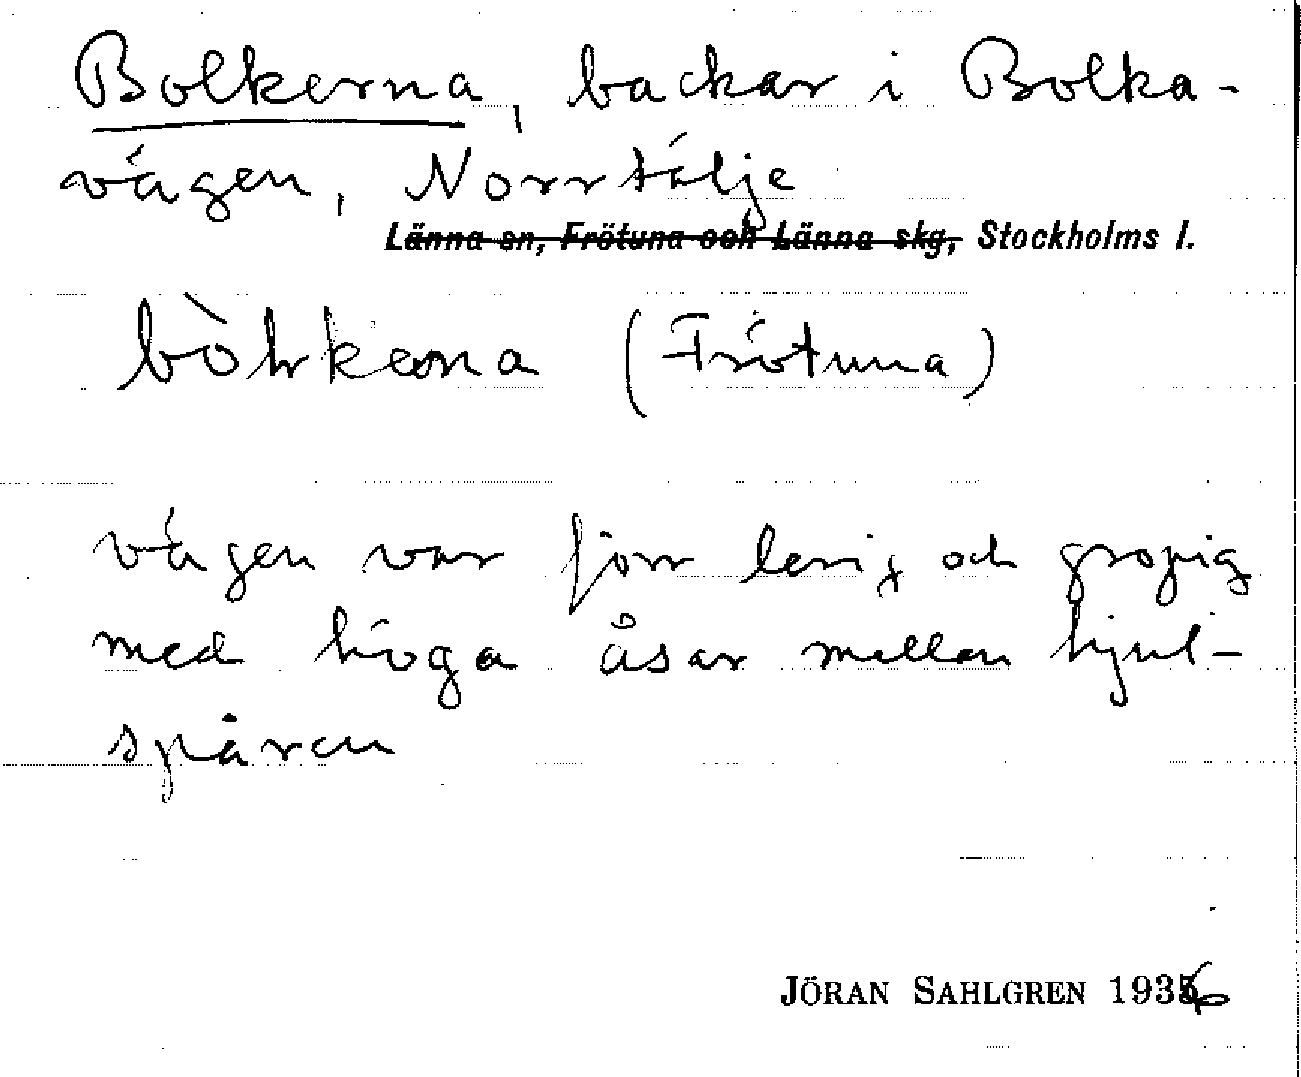 Bolkerna, backar i Bolka-
vägen, Norrtälje
Länna sn, Frötuna och Länna skg, Stockholms l.
(Frötuna)
vägen var förr lerig och gropig
med höga åsar mellan hjul-
spåren
JÖRAN SAHLGREN 1936